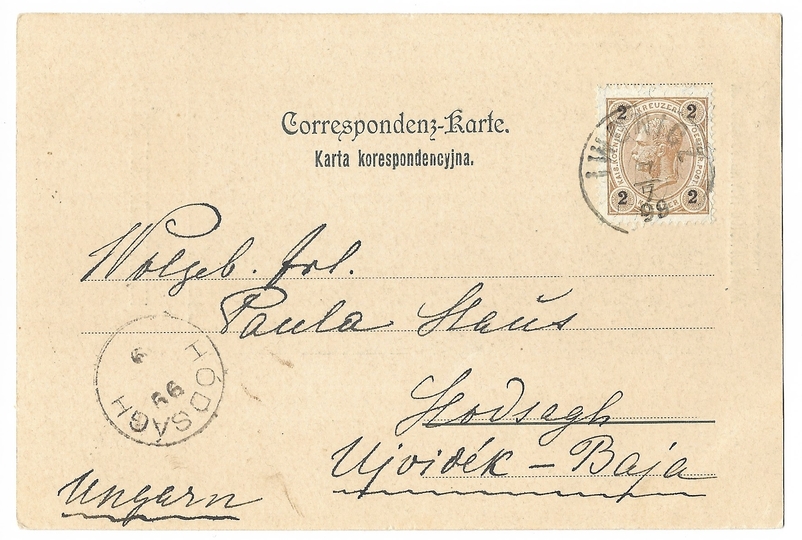 Correspondenz-Karte.
Karta korespondencyjna.
2 KREUZER 2
2 2
99
Wolgeb. Frl.
Paula Haus
HÓDSÁGH
99
Hodsagh
Ujvidék - Baja
Ungarn